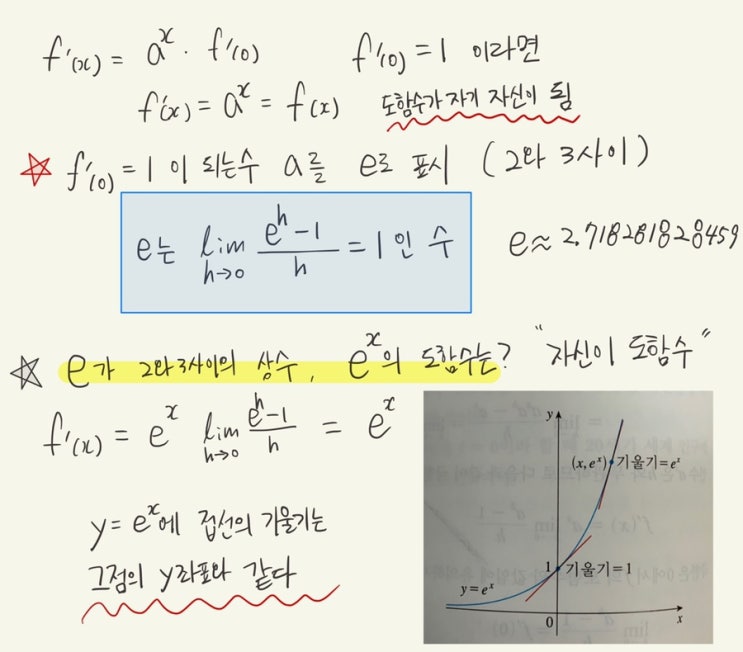 f'(x) = a^x · f'(0)    f'(0) = 1 이라면
f'(x) = a^x = f(x)    도함수가 자기 자신이 됨
☆ f'(0) = 1 이 되는수 a를 e로 표시 (2와 3사이)
e는 lim h→0 (e^h-1)/h = 1 인 수    e≈2.718281828459
☆ e가 2와3사이의 상수, e^x의 도함수는? "자신이 도함수"
f'(x) = e^x lim h→0 (e^h-1)/h = e^x
y = e^x에 접선의 기울기는
그점의 y좌표와 같다
y
(x, e^x) 기울기=e^x
1 기울기=1
y=e^x
0 x